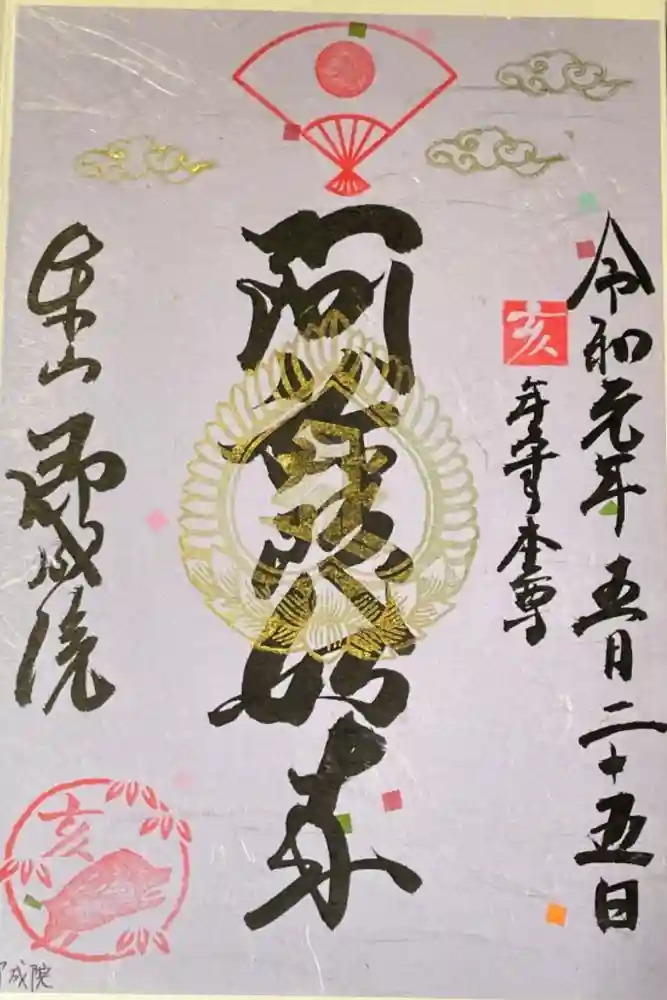 令和元年五月二十五日
亥
年守り本尊
阿弥陀如来
泉山
即成院
亥
即成院